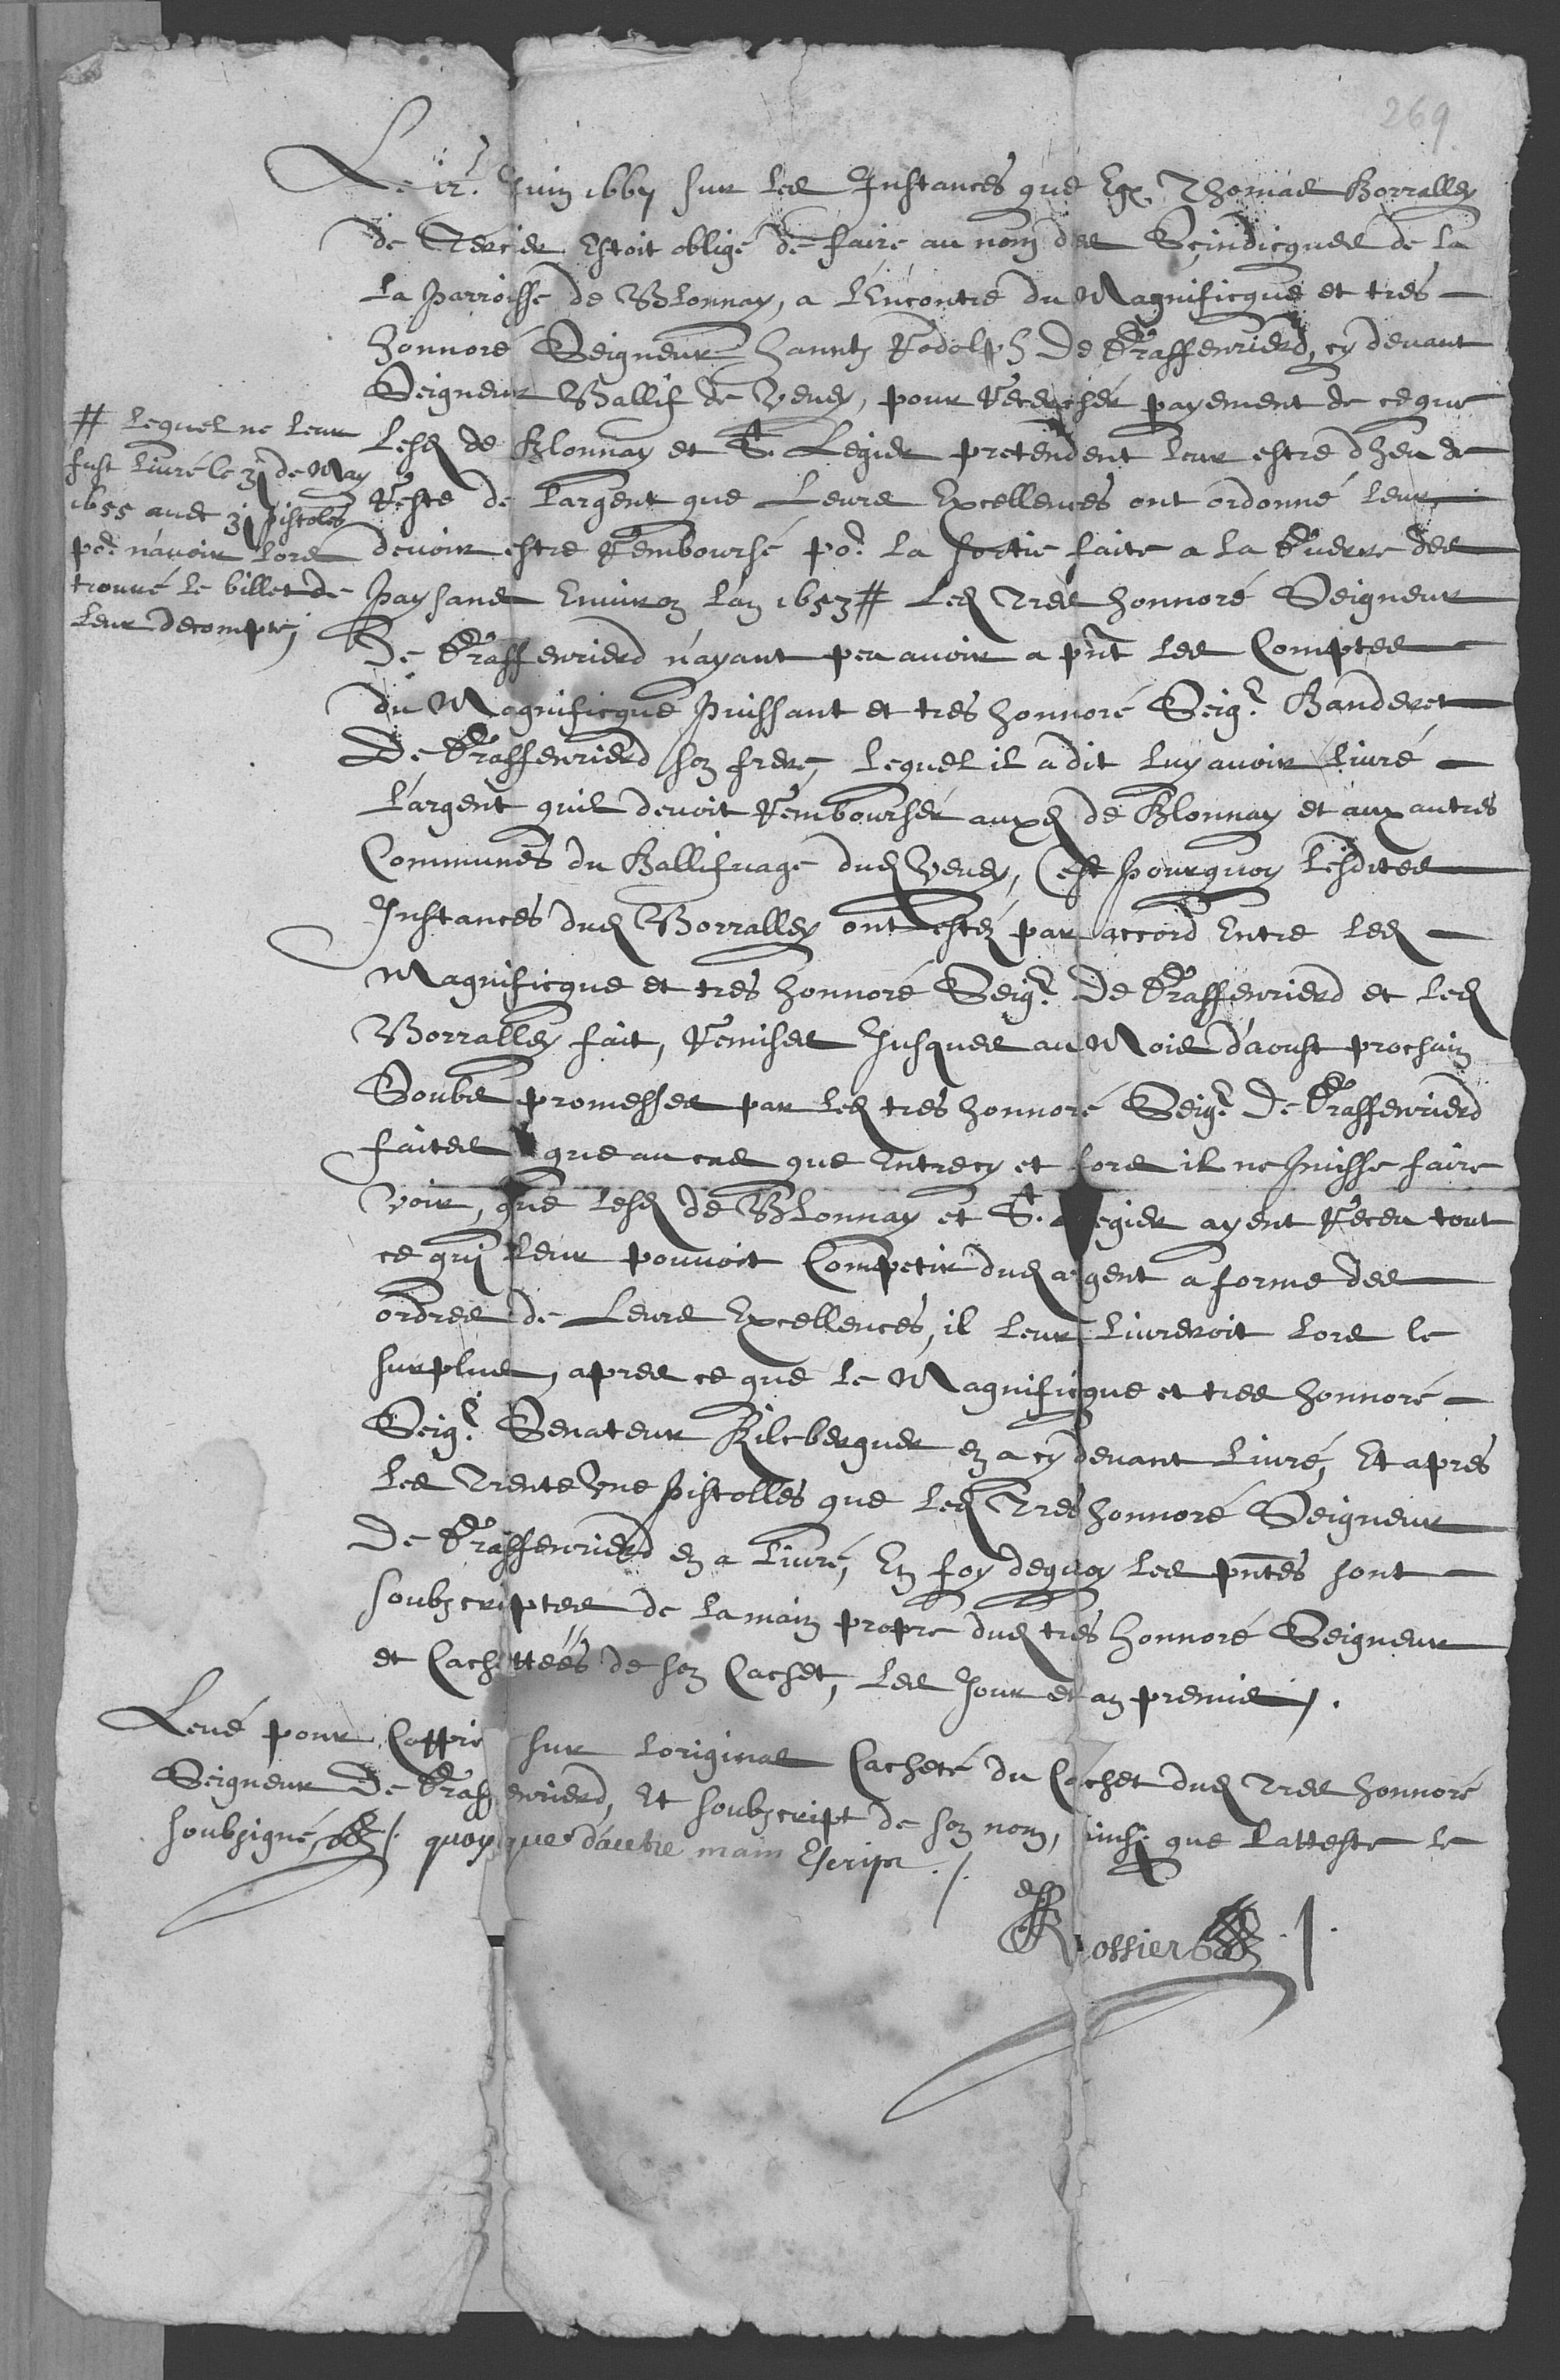 269
Le 12.e Juin 1667 sur les Instances que Eg. Thomas Borralley
de Tercier Estoit obligé de faire au nom des Scindicques de la
la parroisse de Blonnay, a l'Encontre du Magnificque et tres
honnoré Seigneur Hannts Rodolph De Graffenrierd, cy devant
Seigneur Ballif de Vevey, pour Recercher payement de ce que
Lesd de Blonnay et St. Legier pretendent leur estre dheu de
Reste de l'argent que Leurs Excellences ont ordonné leur
devoir estre Remboursé po.r la sortie faite a la Guerre des
Paysans Environ l'an 1653 # Led Tres honnoré Seigneur
De Graffenrierd n'ayant peu avoir a pnt les Comptes
du Magnificque Puissant et tres honnoré Seig.r Banderet
De Graffenrierd son frere, lequel il a dit luy avoir livré
l'argent quil devoit Rembourser auxd de Blonnay et aux autres
Communes du Ballifvage dud Vevey, Cest pourquoy lesdites
Instances dud Borralley ont estez par accord Entre led
Magnificque et tres honnoré Seig.r De Graffenrierd et led
Borralley fait, Remises Jusques au Mois d'aoust prochain
Soubs promesses par led tres honnoré Seig.r De Graffenrierd
faites que au cas que Entrecy et lors il ne puisse faire
voir, que lesd de Blonnay et St. Legier ayent Receu tout
ce qui leur pouvoit Competir dud argent a forme des
ordres de Leurs Excellences, il leur livreroit lors le
surplus, apres ce que le Magnificque et tres honnoré
Seig.r Senateur Kilcberguer en a cy devant Livré, Et apres
les Trente Une Pistolles que led Tres honnoré Seigneur
De Graffenrierd en a livré, En foy dequoy les pntes sont
soubscriptes de la main propre dud tres honnoré Seigneur
et Cachettées de son Cachet, les Jour et an premis /.
# Lequel ne leur
fust livré le 31 de May
1655 avec 31 pistoles
po.r n'avoir lors
trouvé le billet de
leur decompte,
Levé pour Coppie sur l'original Cacheté du Cachet dud Tres honnoré
Seigneur De Graffenrierd, Et soubscript de son nom, ainsi que l'atteste le
soubsigné, /. quoyque d'autre main Escript ./.
Rossier ./.